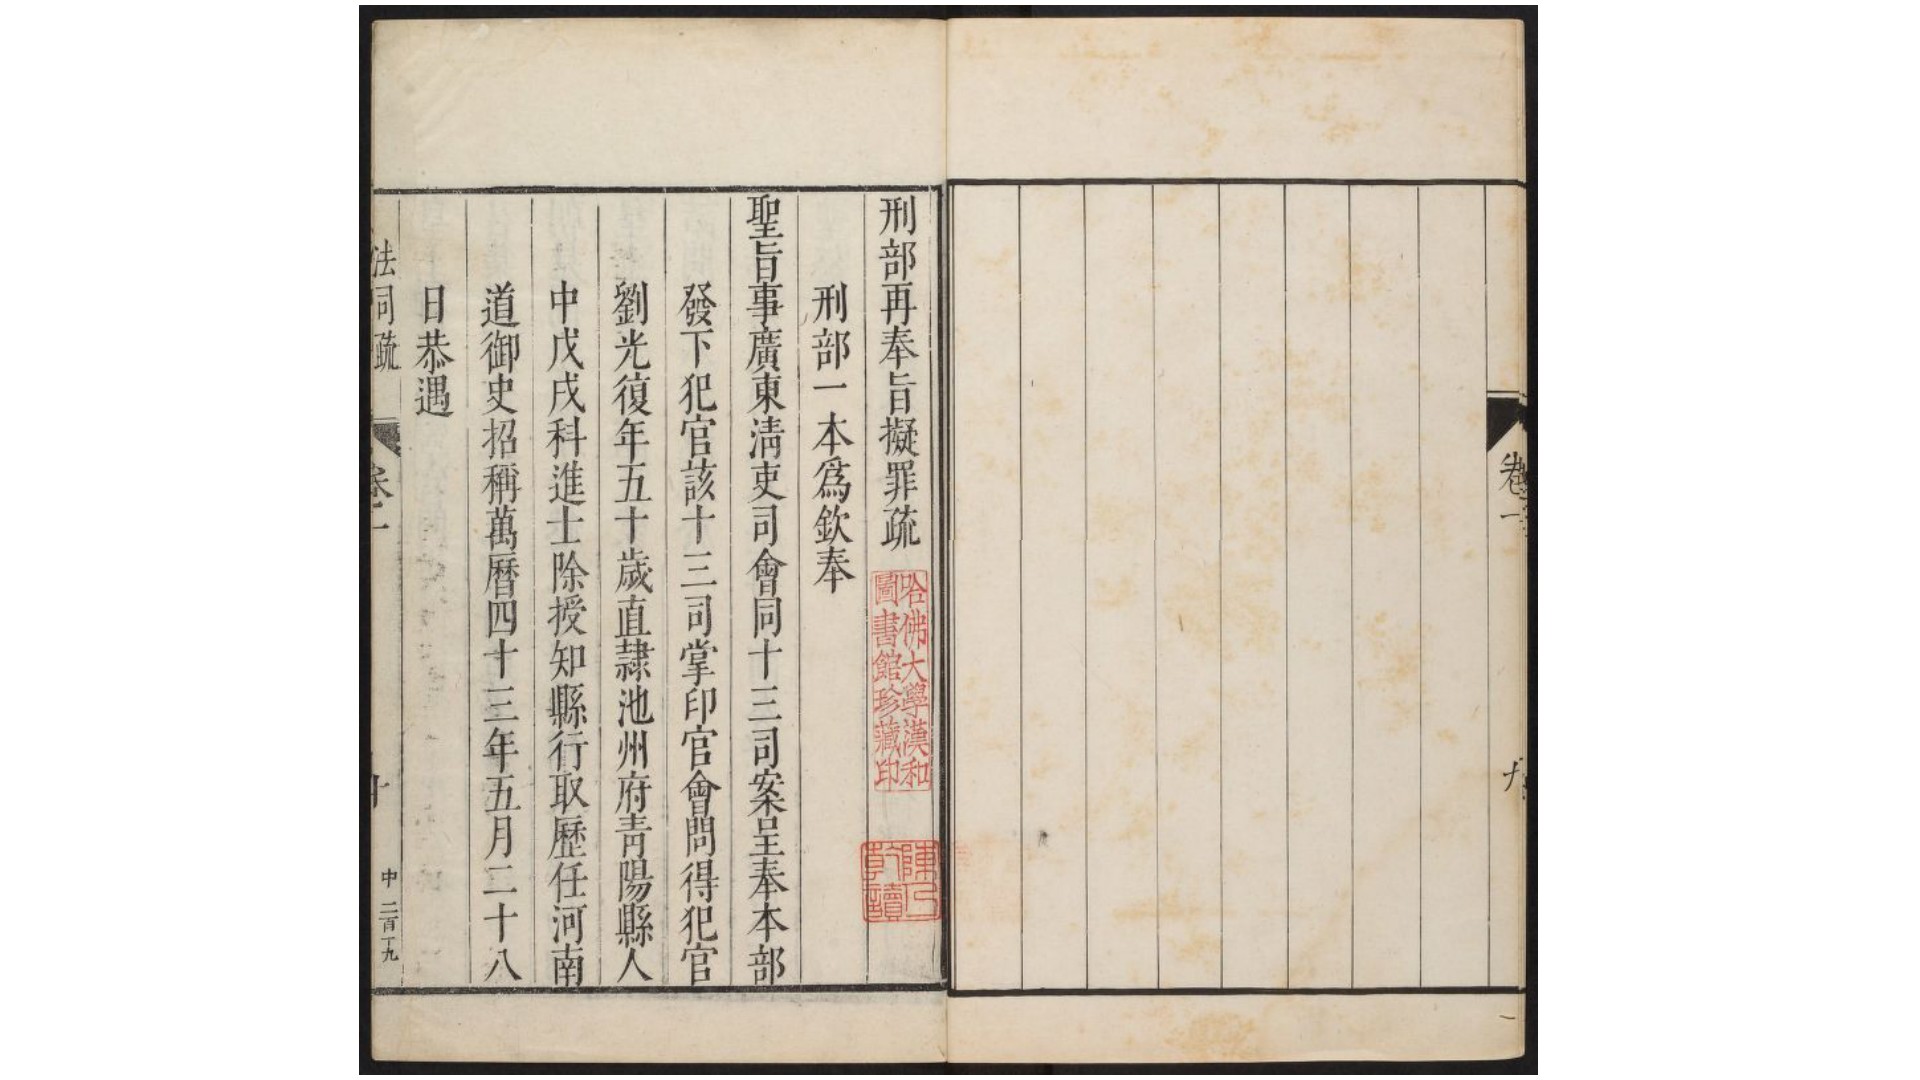 卷一
九
刑部再奉旨擬罪疏
哈佛大學漢和
圖書館珍藏印
刑部一本爲欽奉
聖旨事廣東清吏司會同十三司案呈奉本部
發下犯官該十三司掌印官會問得犯官
劉光復年五十歲直隸池州府青陽縣人
中戊戌科進士除授知縣行取歷任河南
道御史招稱萬曆四十三年五月二十八
日恭遇
法司疏
卷一
十
中 二百十九